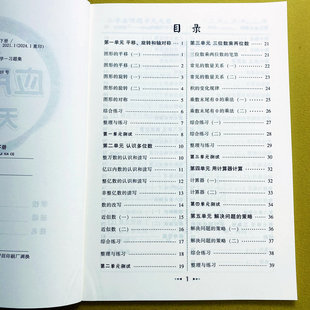 下册
2021.1(2024.1重印)
学一习题集
目 录
第一单元 平移、旋转和轴对称 1
图形的平移(一) 1
图形的平移(二) 2
图形的旋转(一) 3
图形的旋转(二) 4
图形的对称 5
综合练习 6
整理与练习 7
第一单元测试 8
第二单元 认识多位数 10
整万数的认识和读写 10
亿以内数的认识和读写 11
整亿数的认识和读写 12
非整亿数的认识和读写 13
数的改写 14
近似数(一) 15
近似数(二) 16
综合练习 17
整理与练习 18
第二单元测试 19
第三单元 三位数乘两位数 21
三位数乘两位数的笔算 21
常见的数量关系(一) 22
常见的数量关系(二) 23
积的变化规律 24
乘数末尾有0的乘法(一) 25
乘数末尾有0的乘法(二) 26
综合练习(一) 27
综合练习(二) 28
整理与练习 29
第三单元测试 30
第四单元 用计算器计算 32
计算器(一) 32
计算器(二) 33
第四单元测试 34
第五单元 解决问题的策略 36
解决问题的策略(一) 36
解决问题的策略(二) 37
综合练习 38
整理与练习 39
1